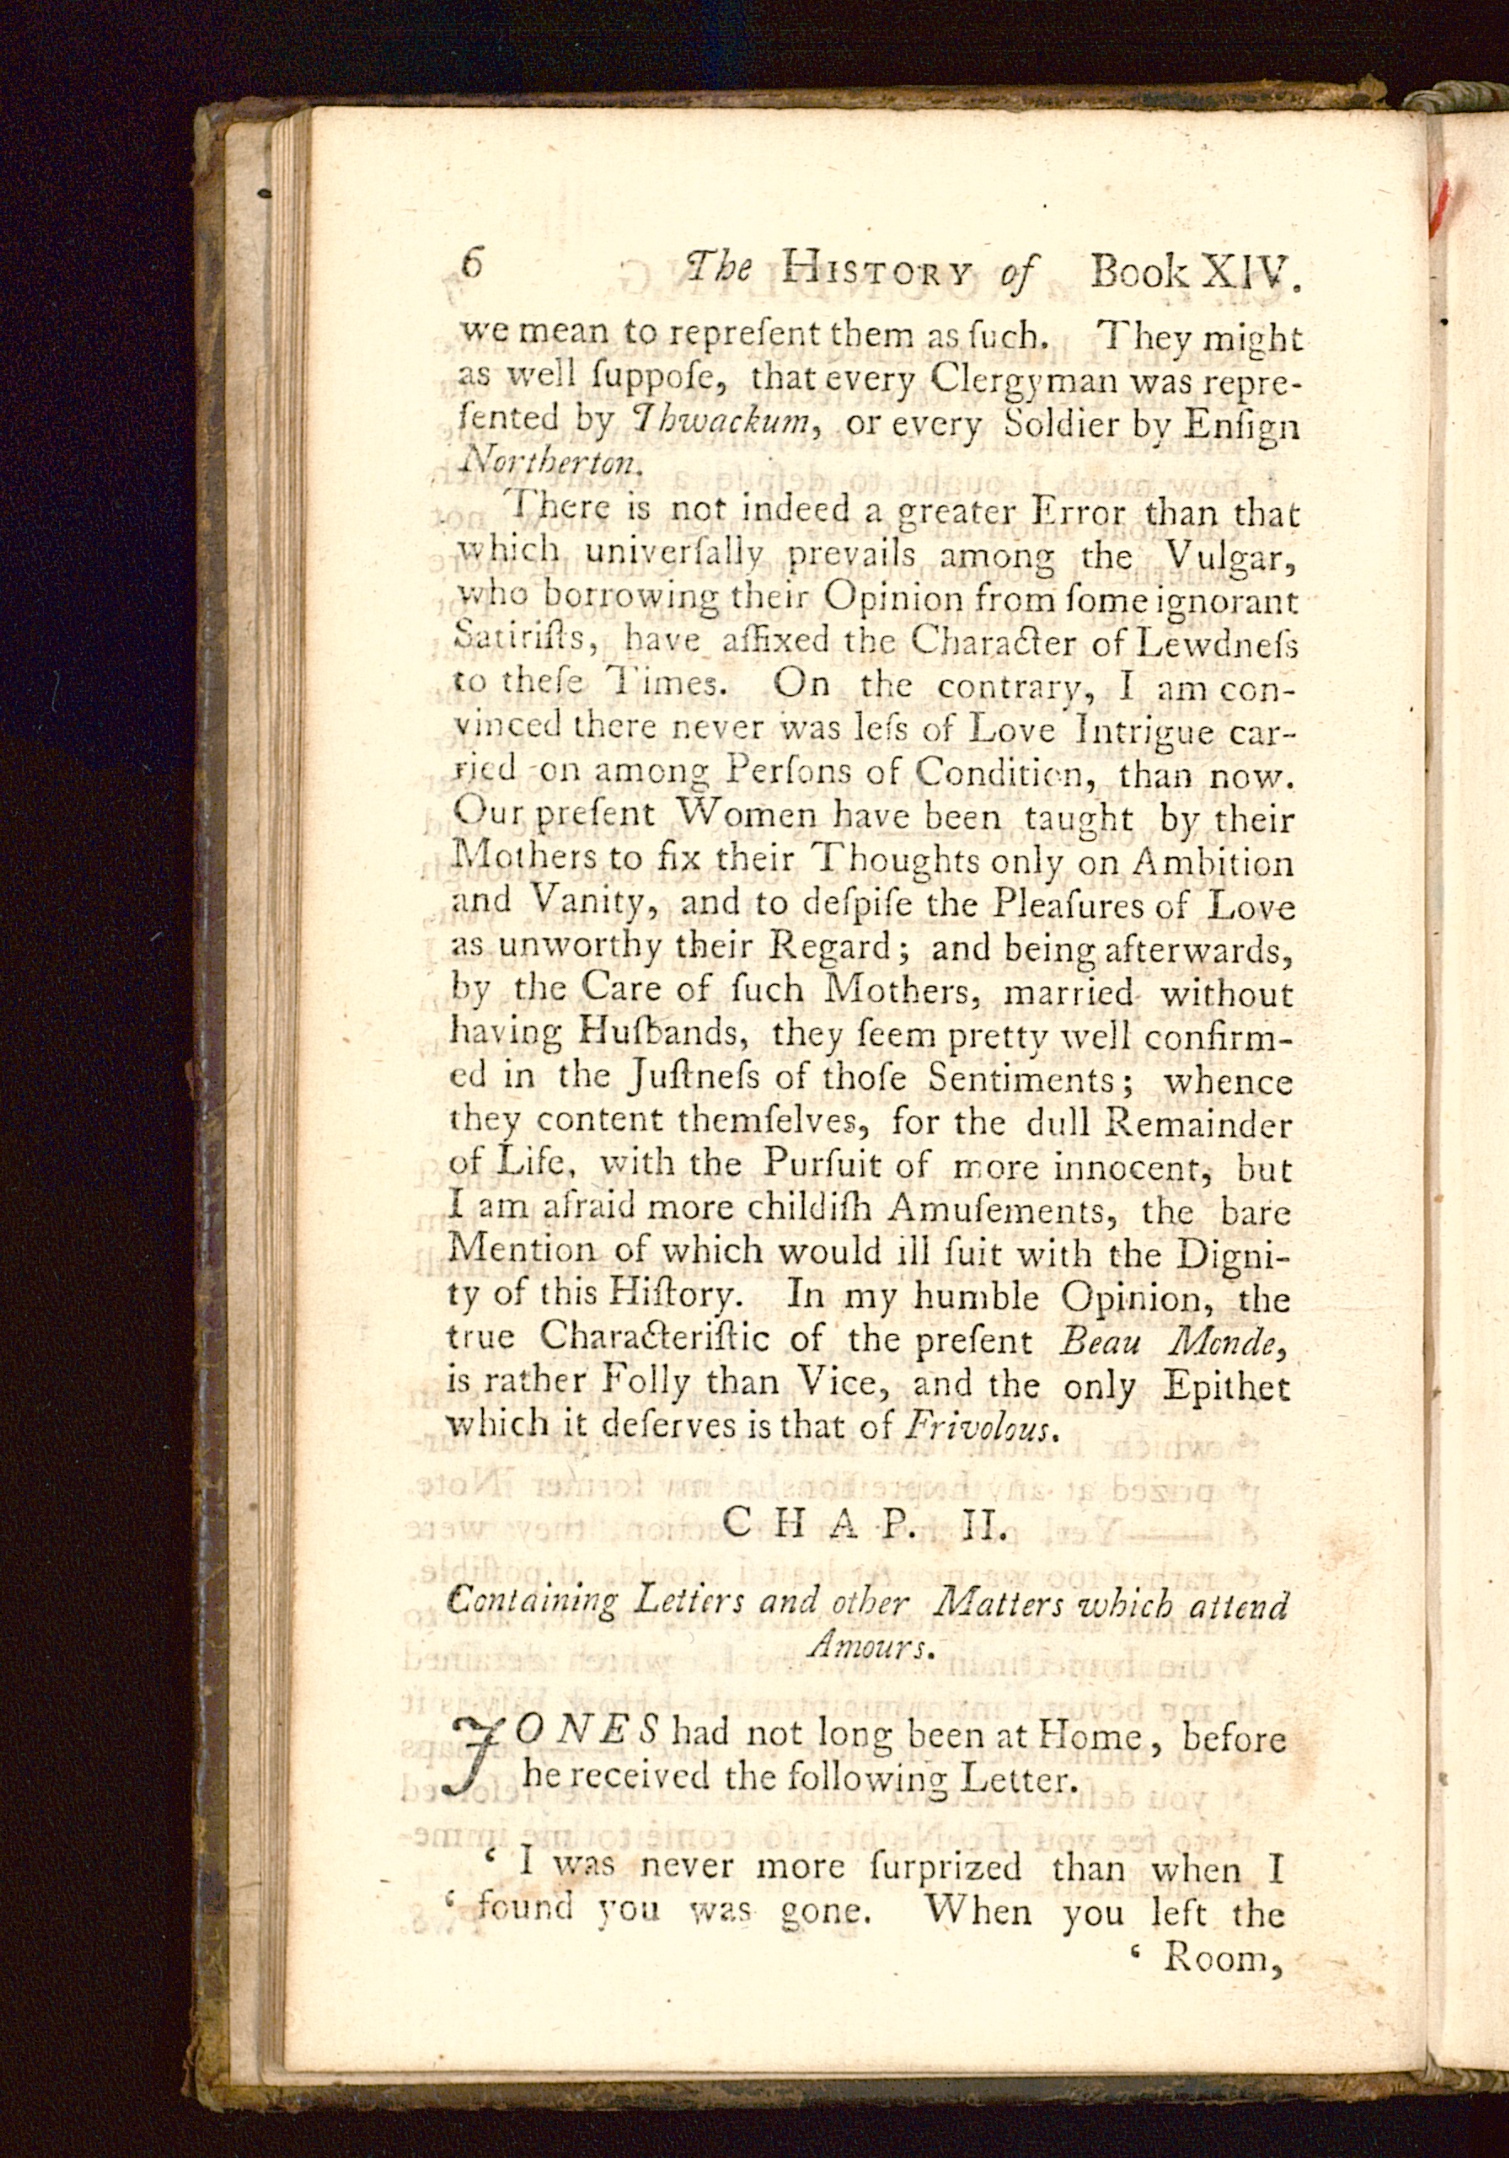 6 The HISTORY of Book XIV.
we mean to repreſent them as ſuch. They might
as well ſuppoſe, that every Clergyman was repre-
ſented by Thwackum, or every Soldier by Enſign
Northerton.
There is not indeed a greater Error than that
which univerſally prevails among the Vulgar,
who borrowing their Opinion from ſome ignorant
Satiriſts, have affixed the Character of Lewdneſs
to theſe Times. On the contrary, I am con-
vinced there never was leſs of Love Intrigue car-
ried on among Perſons of Condition, than now.
Our preſent Women have been taught by their
Mothers to fix their Thoughts only on Ambition
and Vanity, and to deſpiſe the Pleaſures of Love
as unworthy their Regard; and being afterwards,
by the Care of ſuch Mothers, married without
having Huſbands, they ſeem pretty well confirm-
ed in the Juſtneſs of thoſe Sentiments; whence
they content themſelves, for the dull Remainder
of Life, with the Purſuit of more innocent, but
I am afraid more childiſh Amuſements, the bare
Mention of which would ill ſuit with the Digni-
ty of this Hiſtory. In my humble Opinion, the
true Characteriſtic of the preſent Beau Monde,
is rather Folly than Vice, and the only Epithet
which it deſerves is that of Frivolous.
CHAP. II.
Containing Letters and other Matters which attend
Amours.
JONES had not long been at Home, before
he received the following Letter.
‘ I was never more ſurprized than when I
‘ found you was gone. When you left the
‘ Room,